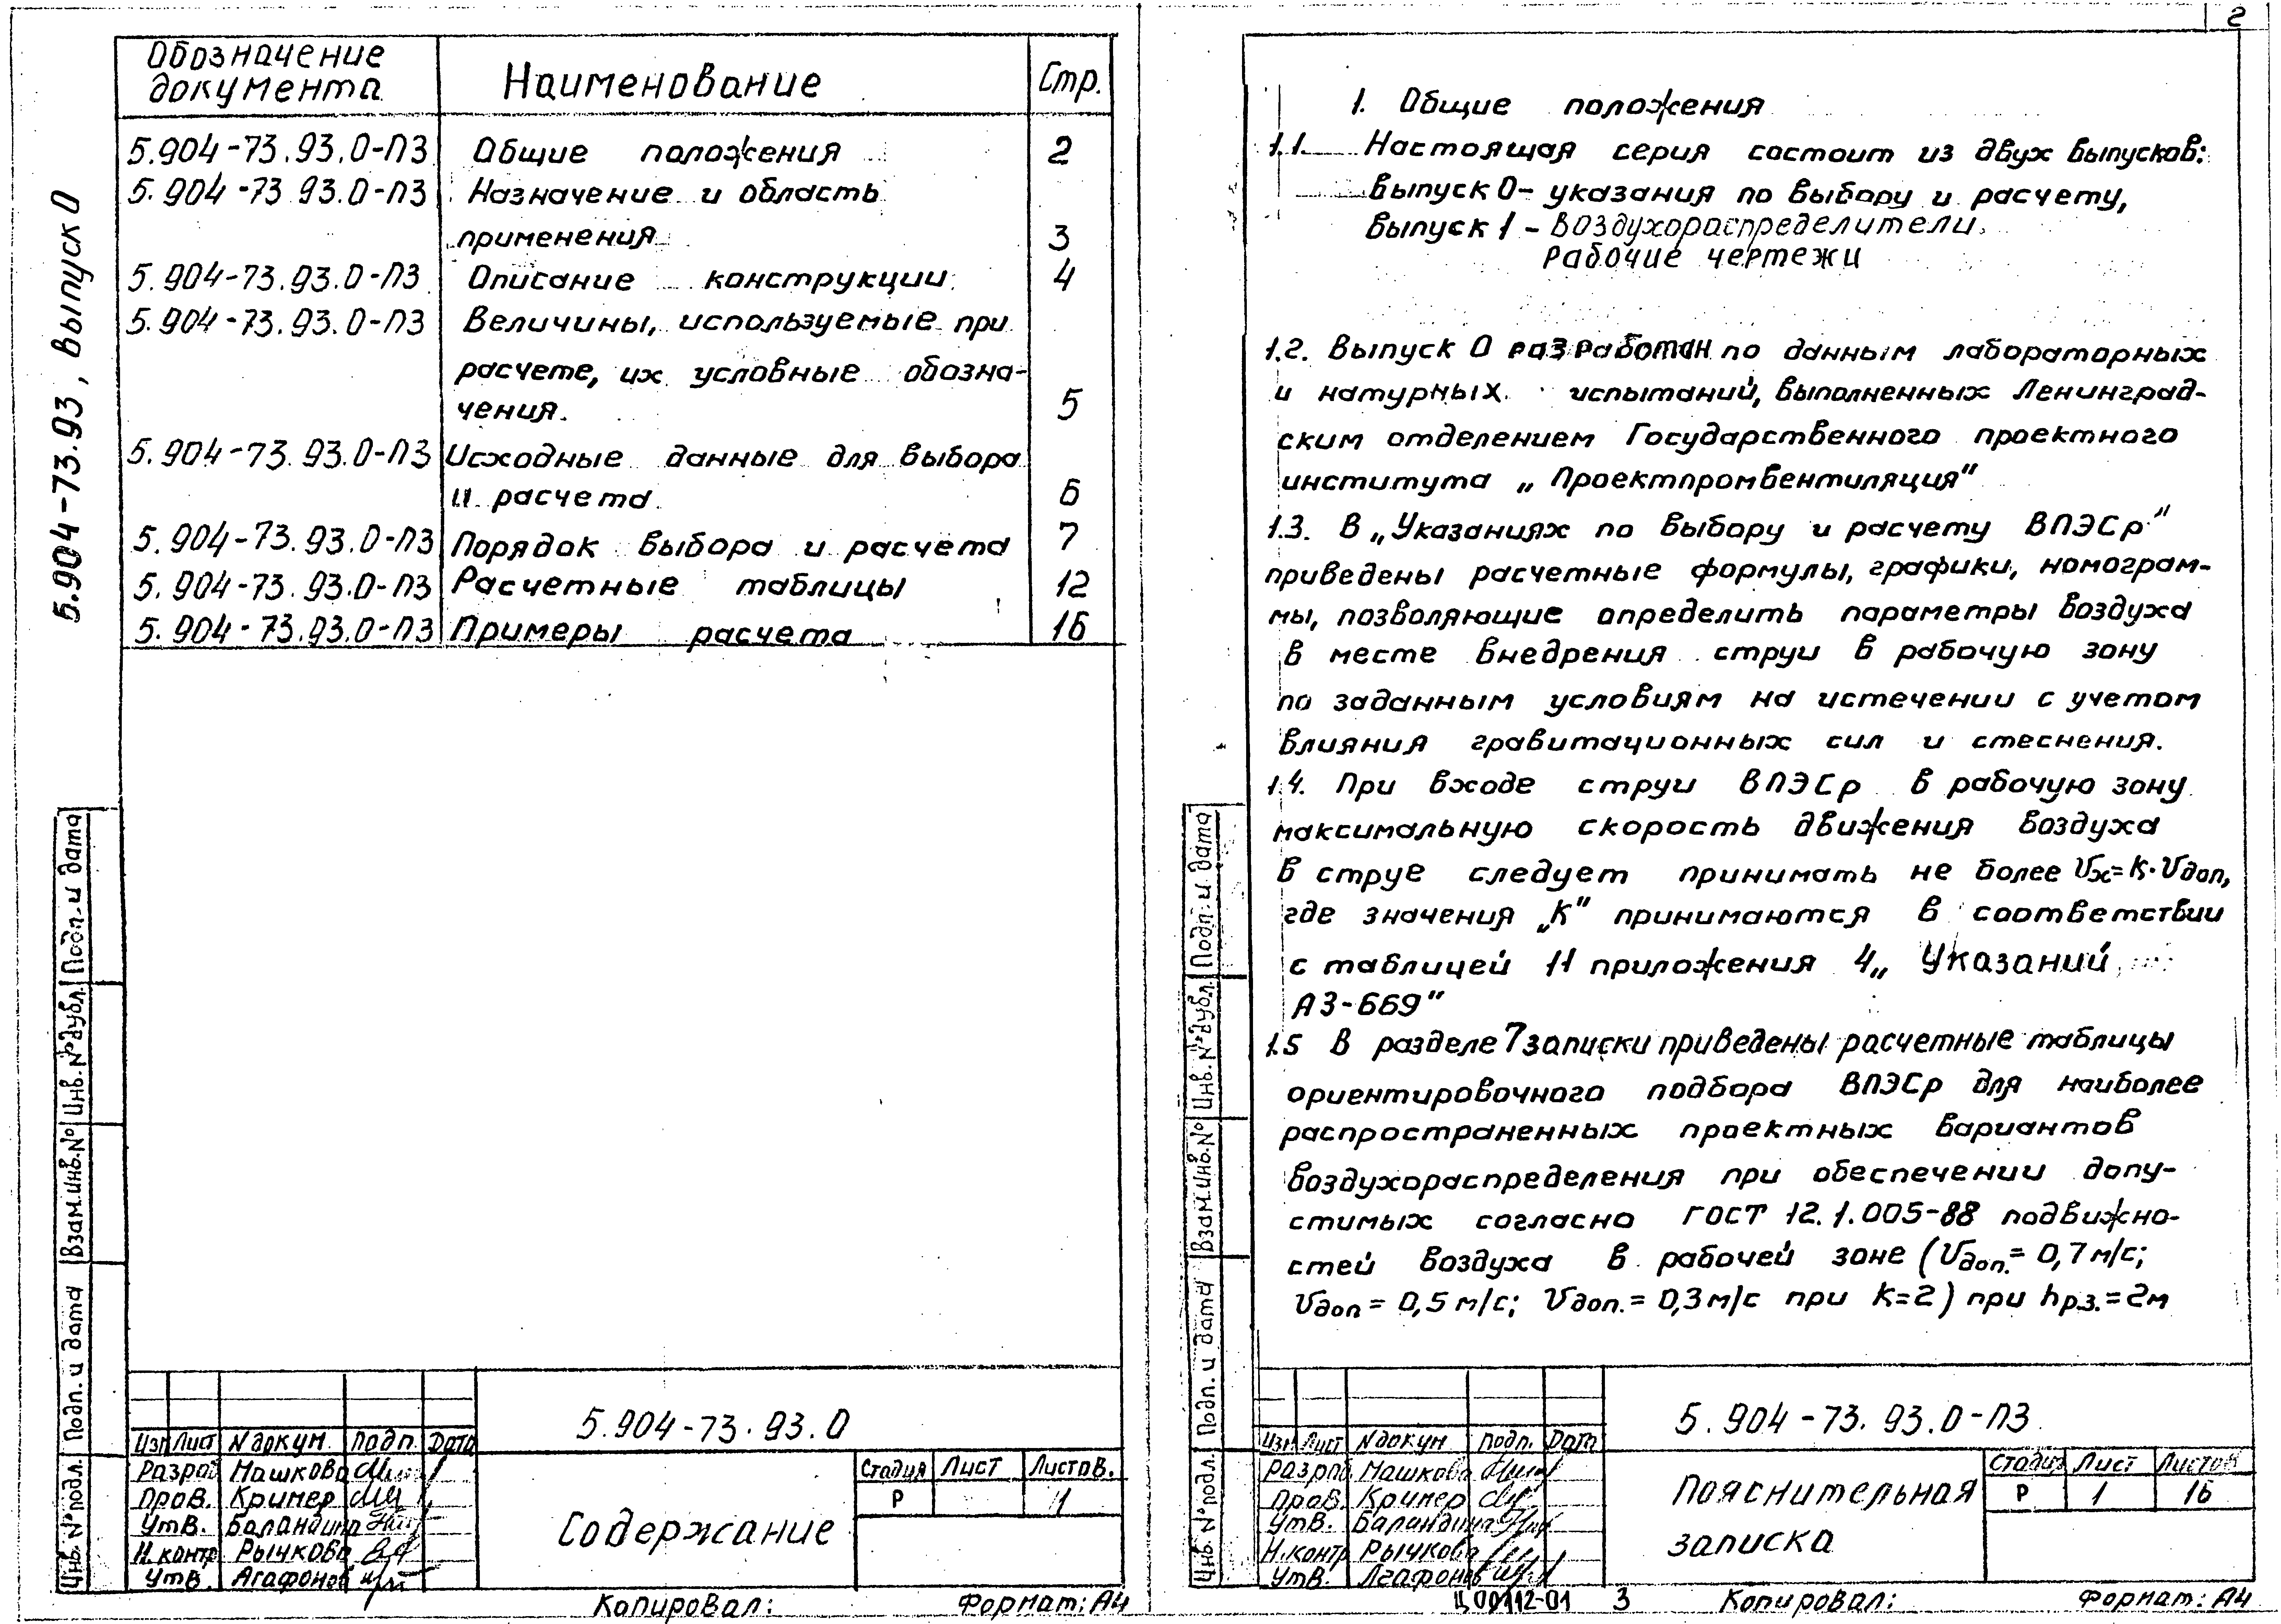 5.904-73.93, выпуск 0
Обозначение документа
Наименование
Стр.
5.904-73.93.0-ПЗ Общие положения 2
5.904-73 93.0-ПЗ Назначение и область
применения 3
5.904-73.93.0-ПЗ Описание конструкции 4
5.904-73.93.0-ПЗ Величины, используемые при
расчете, их условные обозна-
чения. 5
5.904-73.93.0-ПЗ Исходные данные для выбора
и расчета. 6
5.904-73.93.0-ПЗ Порядок выбора и расчета 7
5.904-73.93.0-ПЗ Расчетные таблицы 12
5.904-73.93.0-ПЗ Примеры расчета 16
Подп. и дата
Инв. № дубл.
Взам.инв.№
Подп. и дата
Инв. № подл.
5.904-73.93.0
Изм Лист № докум. Подп. Дата
Разраб Машкова
Пров. Кример
Утв. Баландина
Н.контр Рычкова
Утв. Агафонов
Содержание
Стадия Лист Листов.
Р 1
Копировал: Формат: А4
2
1. Общие положения
1.1. Настоящая серия состоит из двух выпусков:
выпуск 0- указания по выбору и расчету,
выпуск 1 - Воздухораспределители.
Рабочие чертежи
1.2. Выпуск 0 разработан по данным лабораторных
и натурных испытаний, выполненных Ленинград-
ским отделением Государственного проектного
института „Проектпромвентиляция"
1.3. В „Указаниях по выбору и расчету ВПЭСр"
приведены расчетные формулы, графики, номограм-
мы, позволяющие определить параметры воздуха
в месте внедрения струи в рабочую зону
по заданным условиям на истечении с учетом
влияния гравитационных сил и стеснения.
1.4. При входе струи ВПЭСр в рабочую зону
максимальную скорость движения воздуха
в струе следует принимать не более Vх=К·Vдоп,
где значения „К" принимаются в соответствии
с таблицей 11 приложения 4 „Указаний
А3-669"
1.5 В разделе 7 записки приведены расчетные таблицы
ориентировочного подбора ВПЭСр для наиболее
распространенных проектных вариантов
воздухораспределения при обеспечении допу-
стимых согласно ГОСТ 12.1.005-88 подвижно-
стей воздуха в рабочей зоне (Vдоп.= 0,7 м/с;
Vдоп = 0,5 м/с; Vдоп.= 0,3 м/с при К=2) при hр.з.=2м
Подп. и дата
Инв. № дубл.
Взам.инв.№
Подп. и дата
Инв. № подл.
5.904-73.93.0-ПЗ
Изм Лист № докум Подп. Дата
Разраб Машкова
Пров. Кример
Утв. Баландина
Н.контр Рычкова
Утв. Агафонов
Пояснительная
записка
Стадия Лист Листов
Р 1 16
Ц00112-01 3 Копировал: Формат: А4